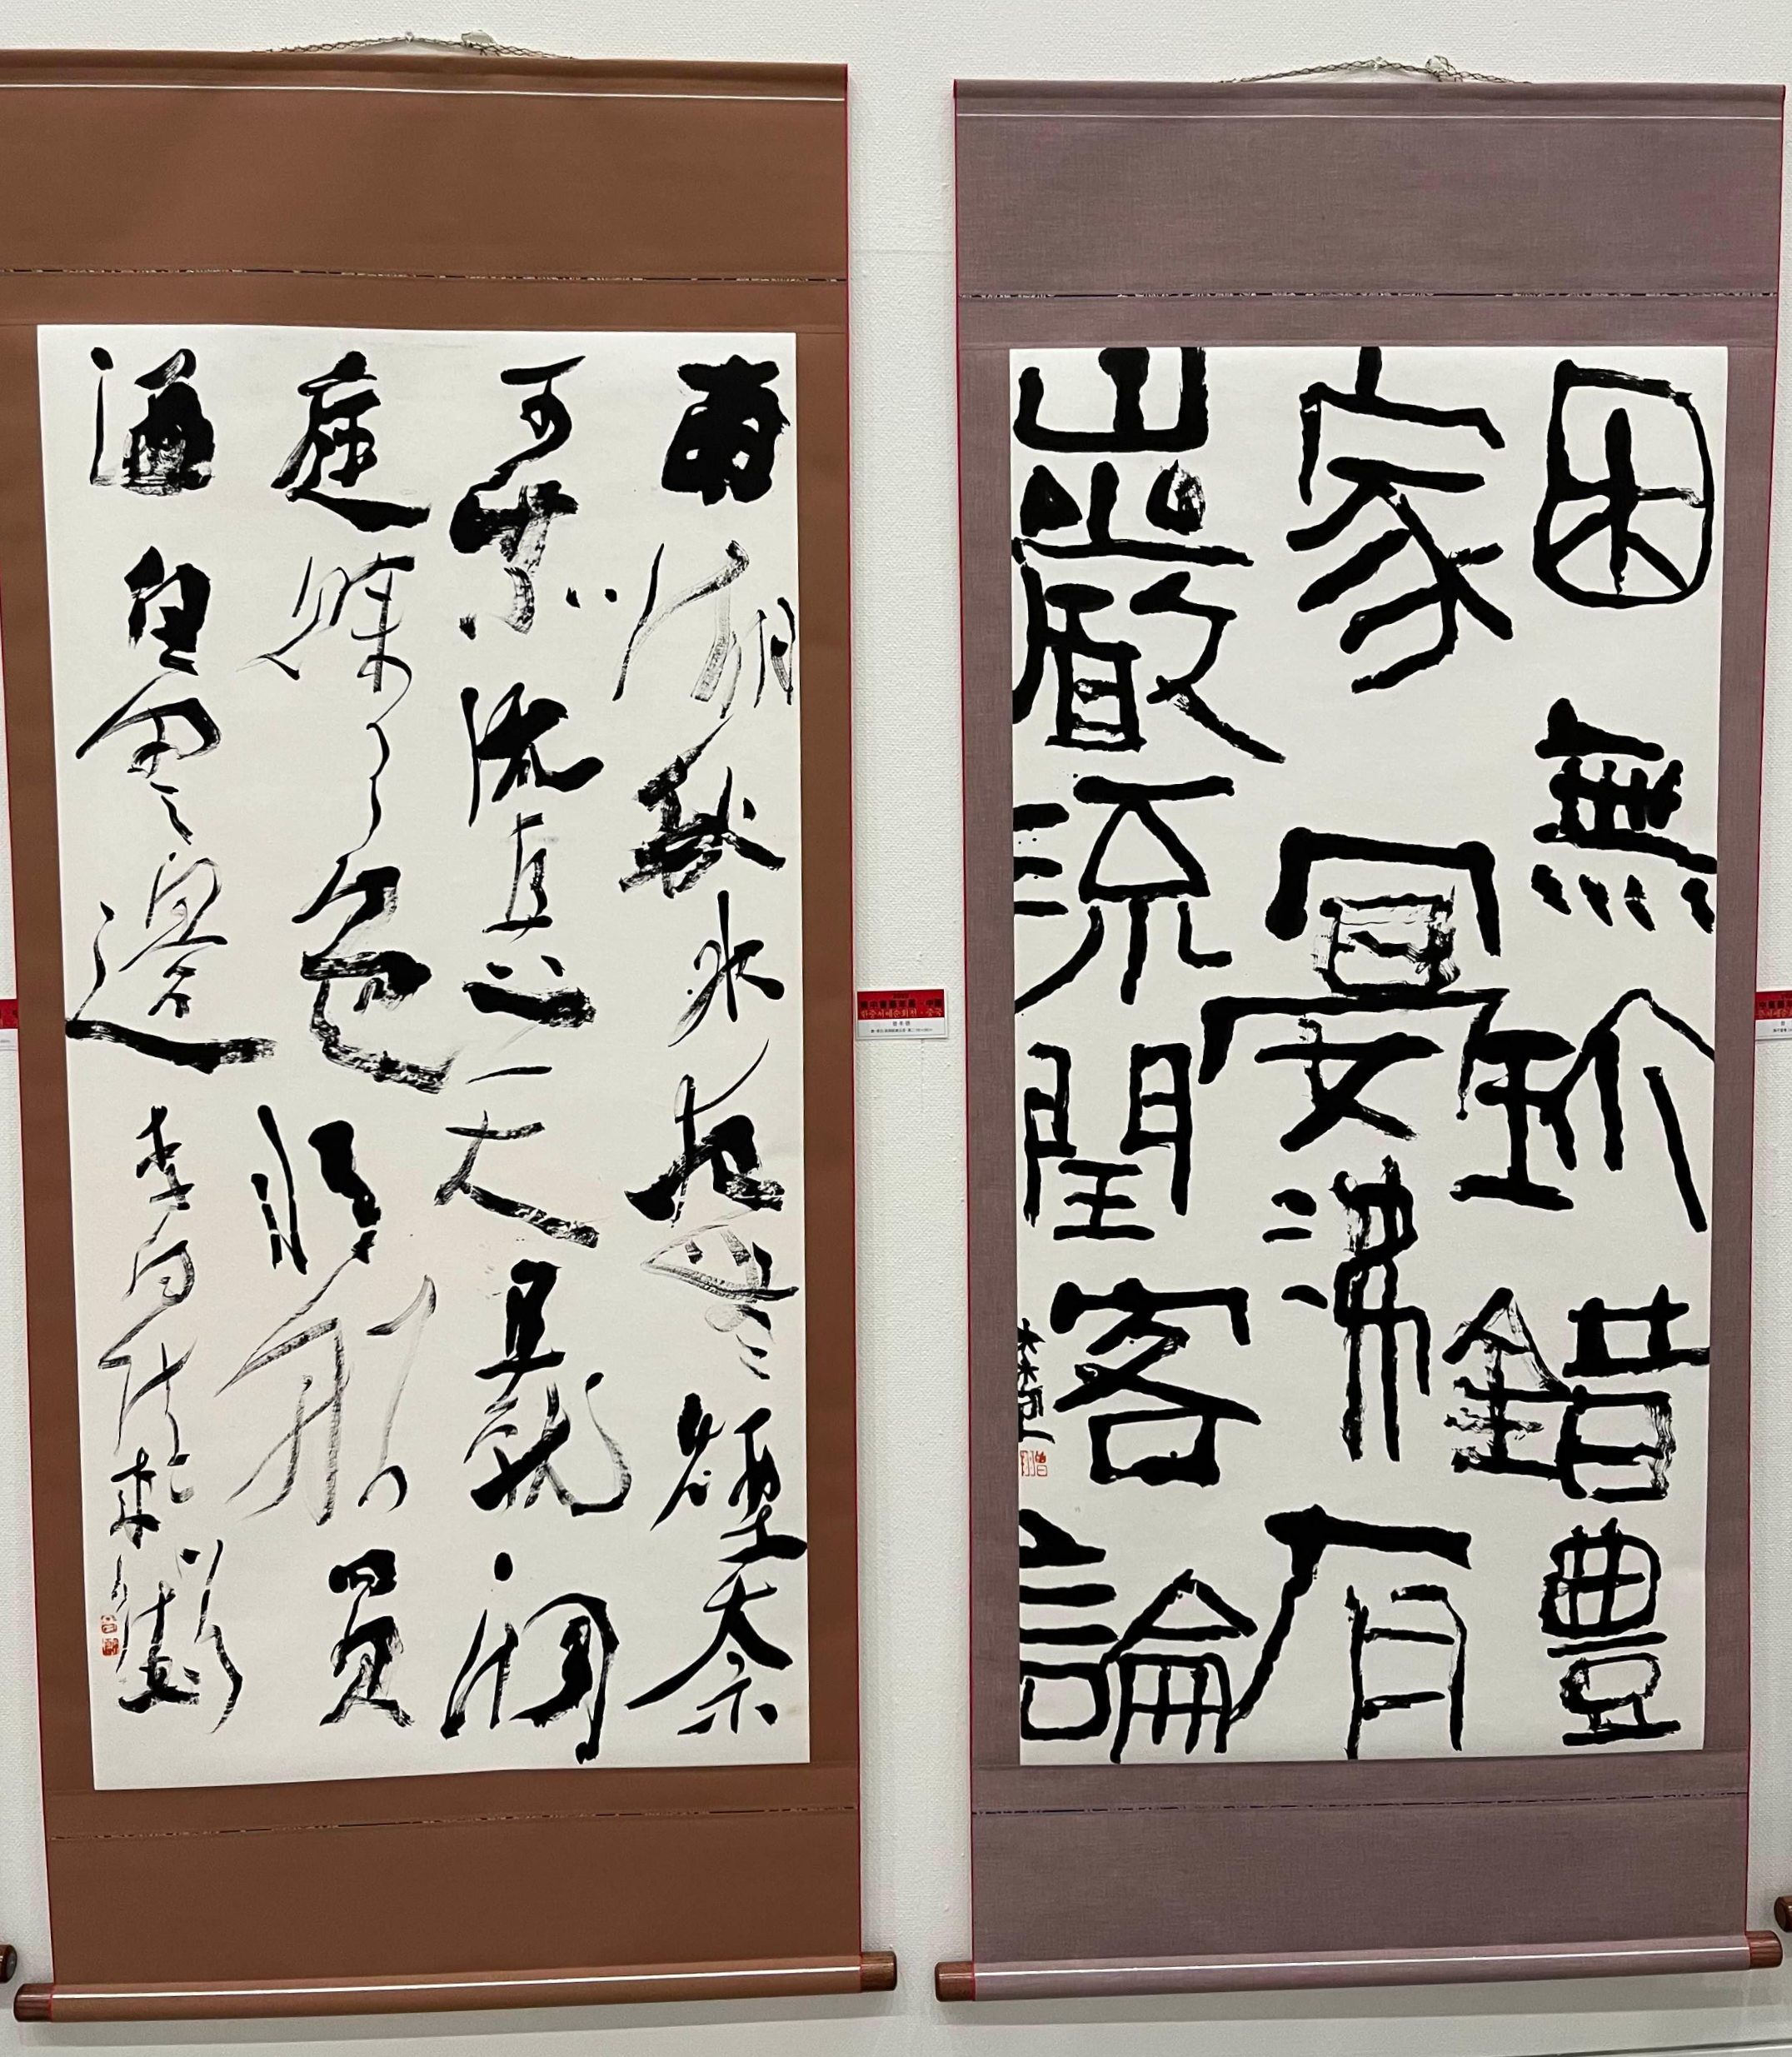 困無珍錯豊
家宴沸有
巖流閏客論
南湖秋水夜無煙奈
可乘流直上天且就洞
庭賒月色將船買
酒白雲邊 李白詩